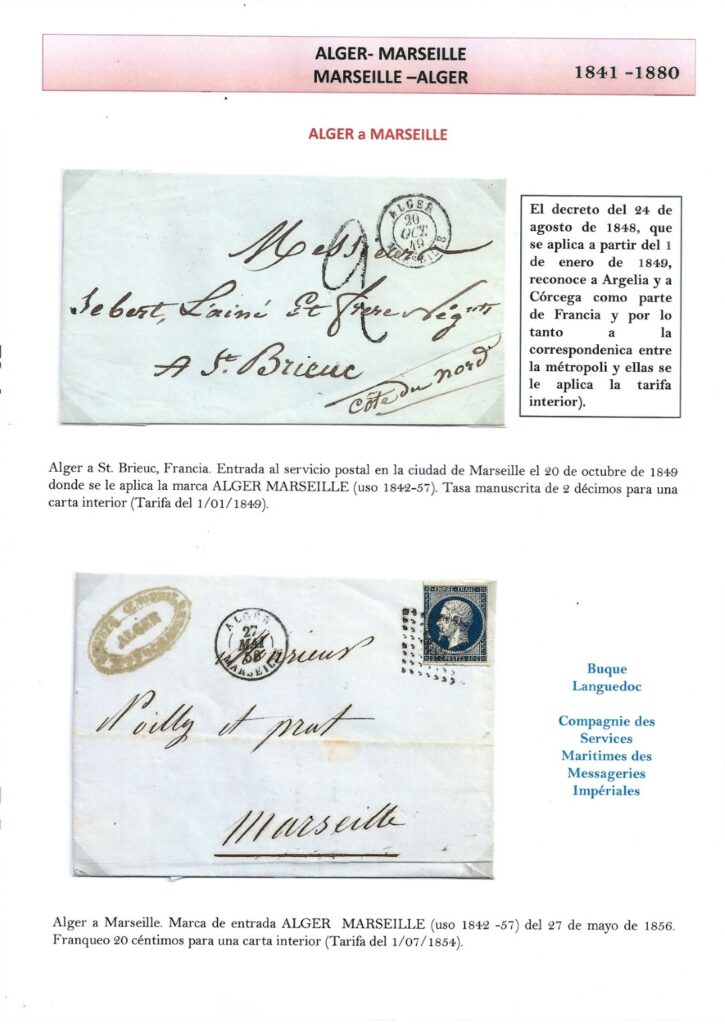 ALGER- MARSEILLE
MARSEILLE –ALGER
1841 -1880
ALGER a MARSEILLE
ALGER
20
OCT
49
MARSEILLE
2
Messieurs
Sebert, L'ainé Et frere Négts
A St. Brieuc
Côte du nord
El decreto del 24 de
agosto de 1848, que
se aplica a partir del 1
de enero de 1849,
reconoce a Argelia y a
Córcega como parte
de Francia y por lo
tanto a la
correspondenica entre
la métropoli y ellas se
le aplica la tarifa
interior).
Alger a St. Brieuc, Francia. Entrada al servicio postal en la ciudad de Marseille el 20 de octubre de 1849
donde se le aplica la marca ALGER MARSEILLE (uso 1842-57). Tasa manuscrita de 2 décimos para una
carta interior (Tarifa del 1/01/1849).
ALGER
ALGER
27
MAI
MARSEILLE
EMPIRE FRANC
POSTES
Messieurs
Noilly et prat
Marseille
Buque
Languedoc
Compagnie des
Services
Maritimes des
Messageries
Impériales
Alger a Marseille. Marca de entrada ALGER MARSEILLE (uso 1842 -57) del 27 de mayo de 1856.
Franqueo 20 céntimos para una carta interior (Tarifa del 1/07/1854).